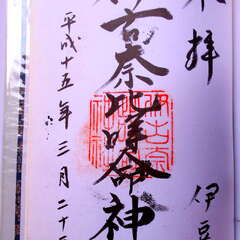 奉拝 伊豆
伊古奈比咩命神
平成十五年三月二十